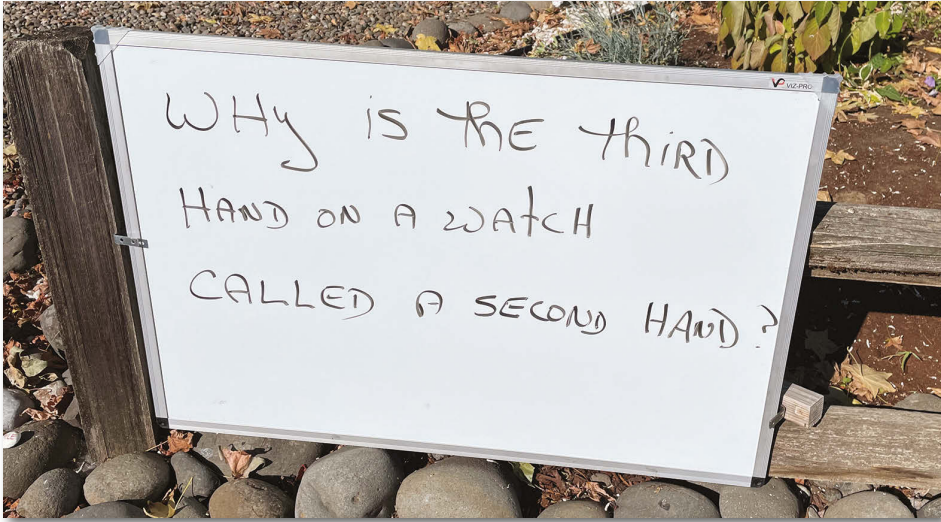 VIZ-PRO
WHY is ThE ThiRD
HAND ON A WAtCH
CALLED A SECOND HAND?